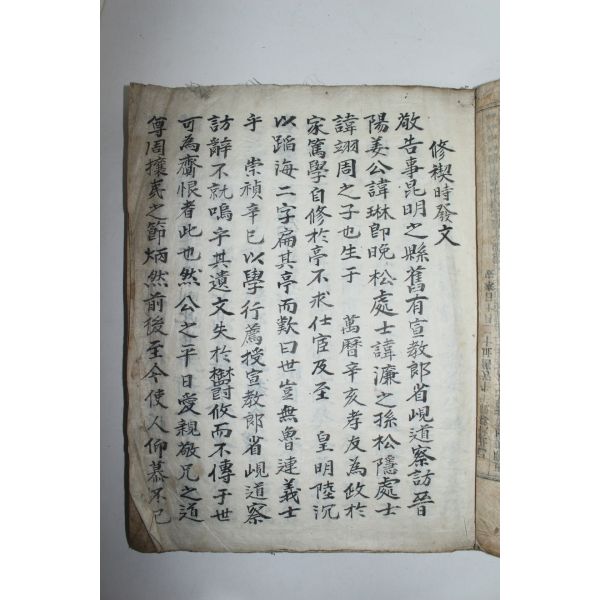 修禊時發文
敬告事昆明之縣舊有宣敎郎省峴道察訪晉
陽姜公諱琳卽晩松處士諱濂之孫松隱處士
諱翊周之子也生于 萬曆辛亥孝友為政於
家篤學自修於亭不求仕宦及至 皇明陸沉
以蹈海二字扁其亭而歎曰世豈無魯連義士
乎 崇禎辛巳以學行薦授宣敎郎省峴道察
訪辭不就嗚乎其遺文失於欝攸而不傳于世
可為齎恨者此也然公之平日愛親敬兄之道
尊周攘夷之節炳然前後至今使人仰慕不已